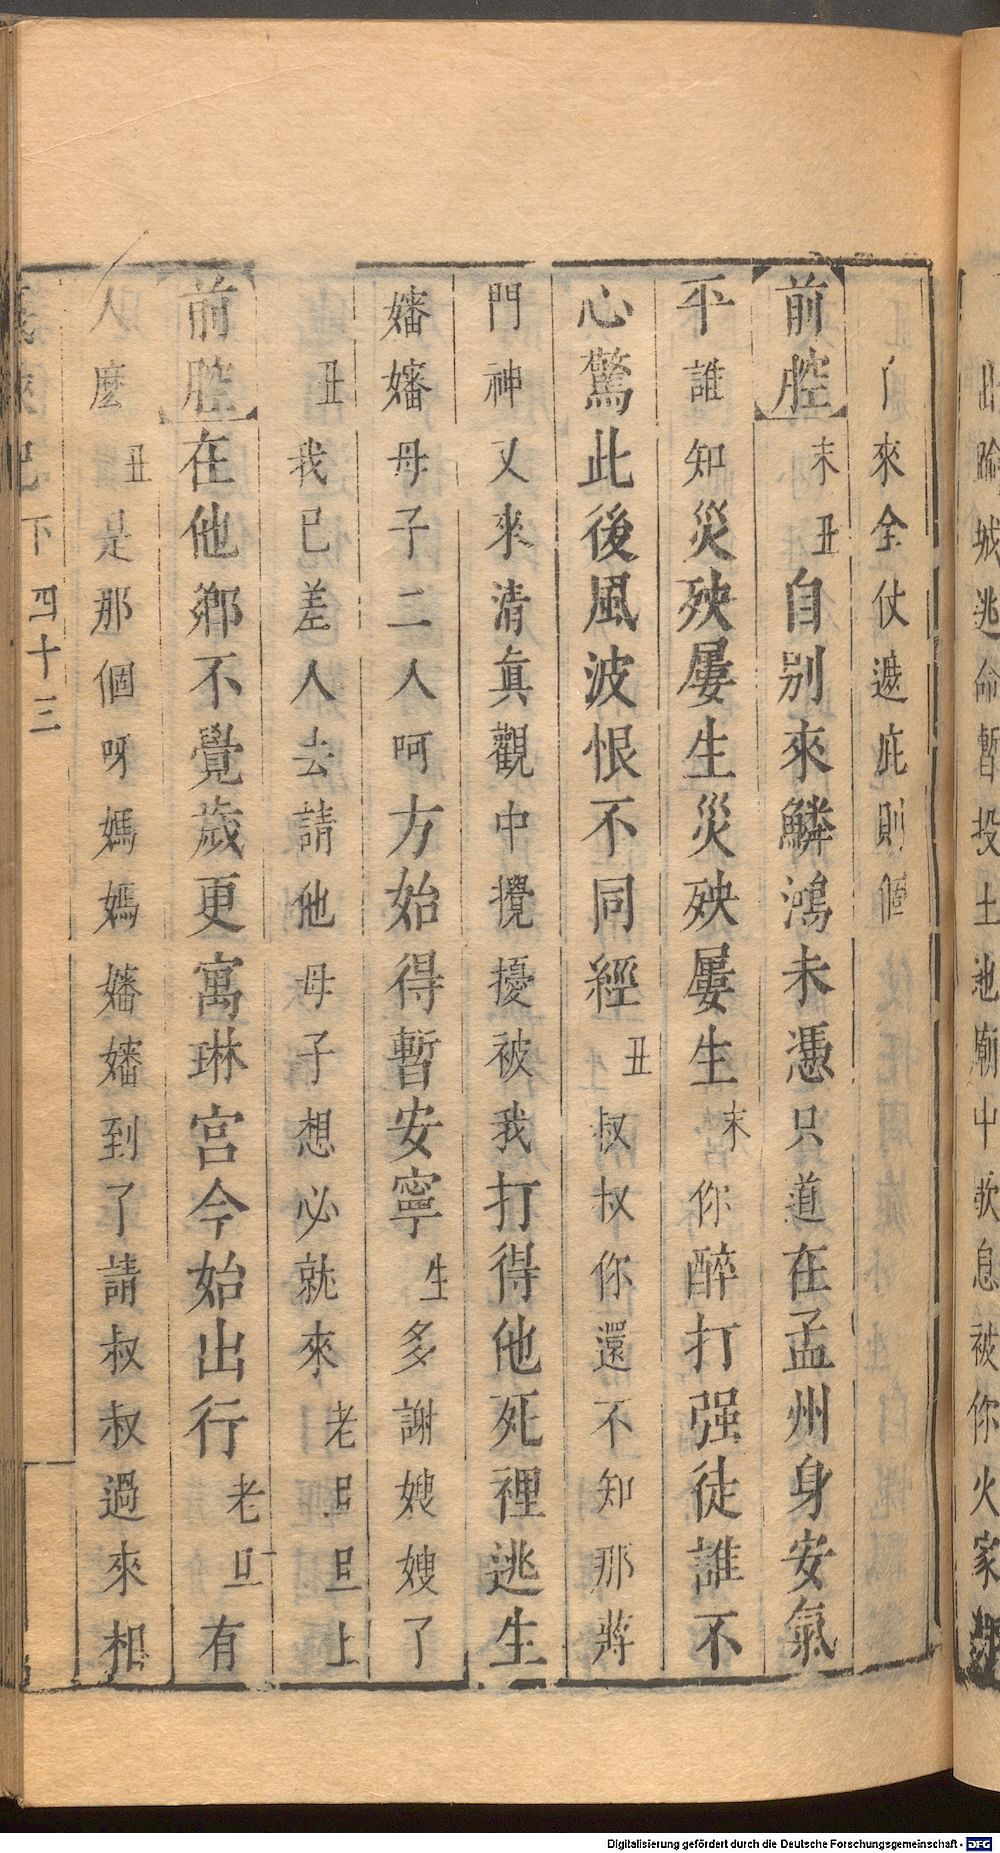 出踰城逃命暫投土池廟中歇息被你火家
了來全仗遮庇則個
前腔末丑自别來鱗鴻未憑只道在孟州身安氣
平誰知災殃屢生災殃屢生末你醉打强徒誰不
心驚此後風波恨不同經丑叔叔你還不知那蔣
門神又來清眞觀中攪擾被我打得他死裡逃生
嬸嬸母子二人呵方始得暫安寧生多謝嫂嫂了
丑我已差人去請他母子想必就來老旦旦上
前腔在他鄉不覺歲更寓琳宫今始出行老旦有
人麽丑是那個呀媽媽嬸嬸到了請叔叔過來相
義俠記下 四十三
Digitalisierung gefördert durch die Deutsche Forschungsgemeinschaft - DFG